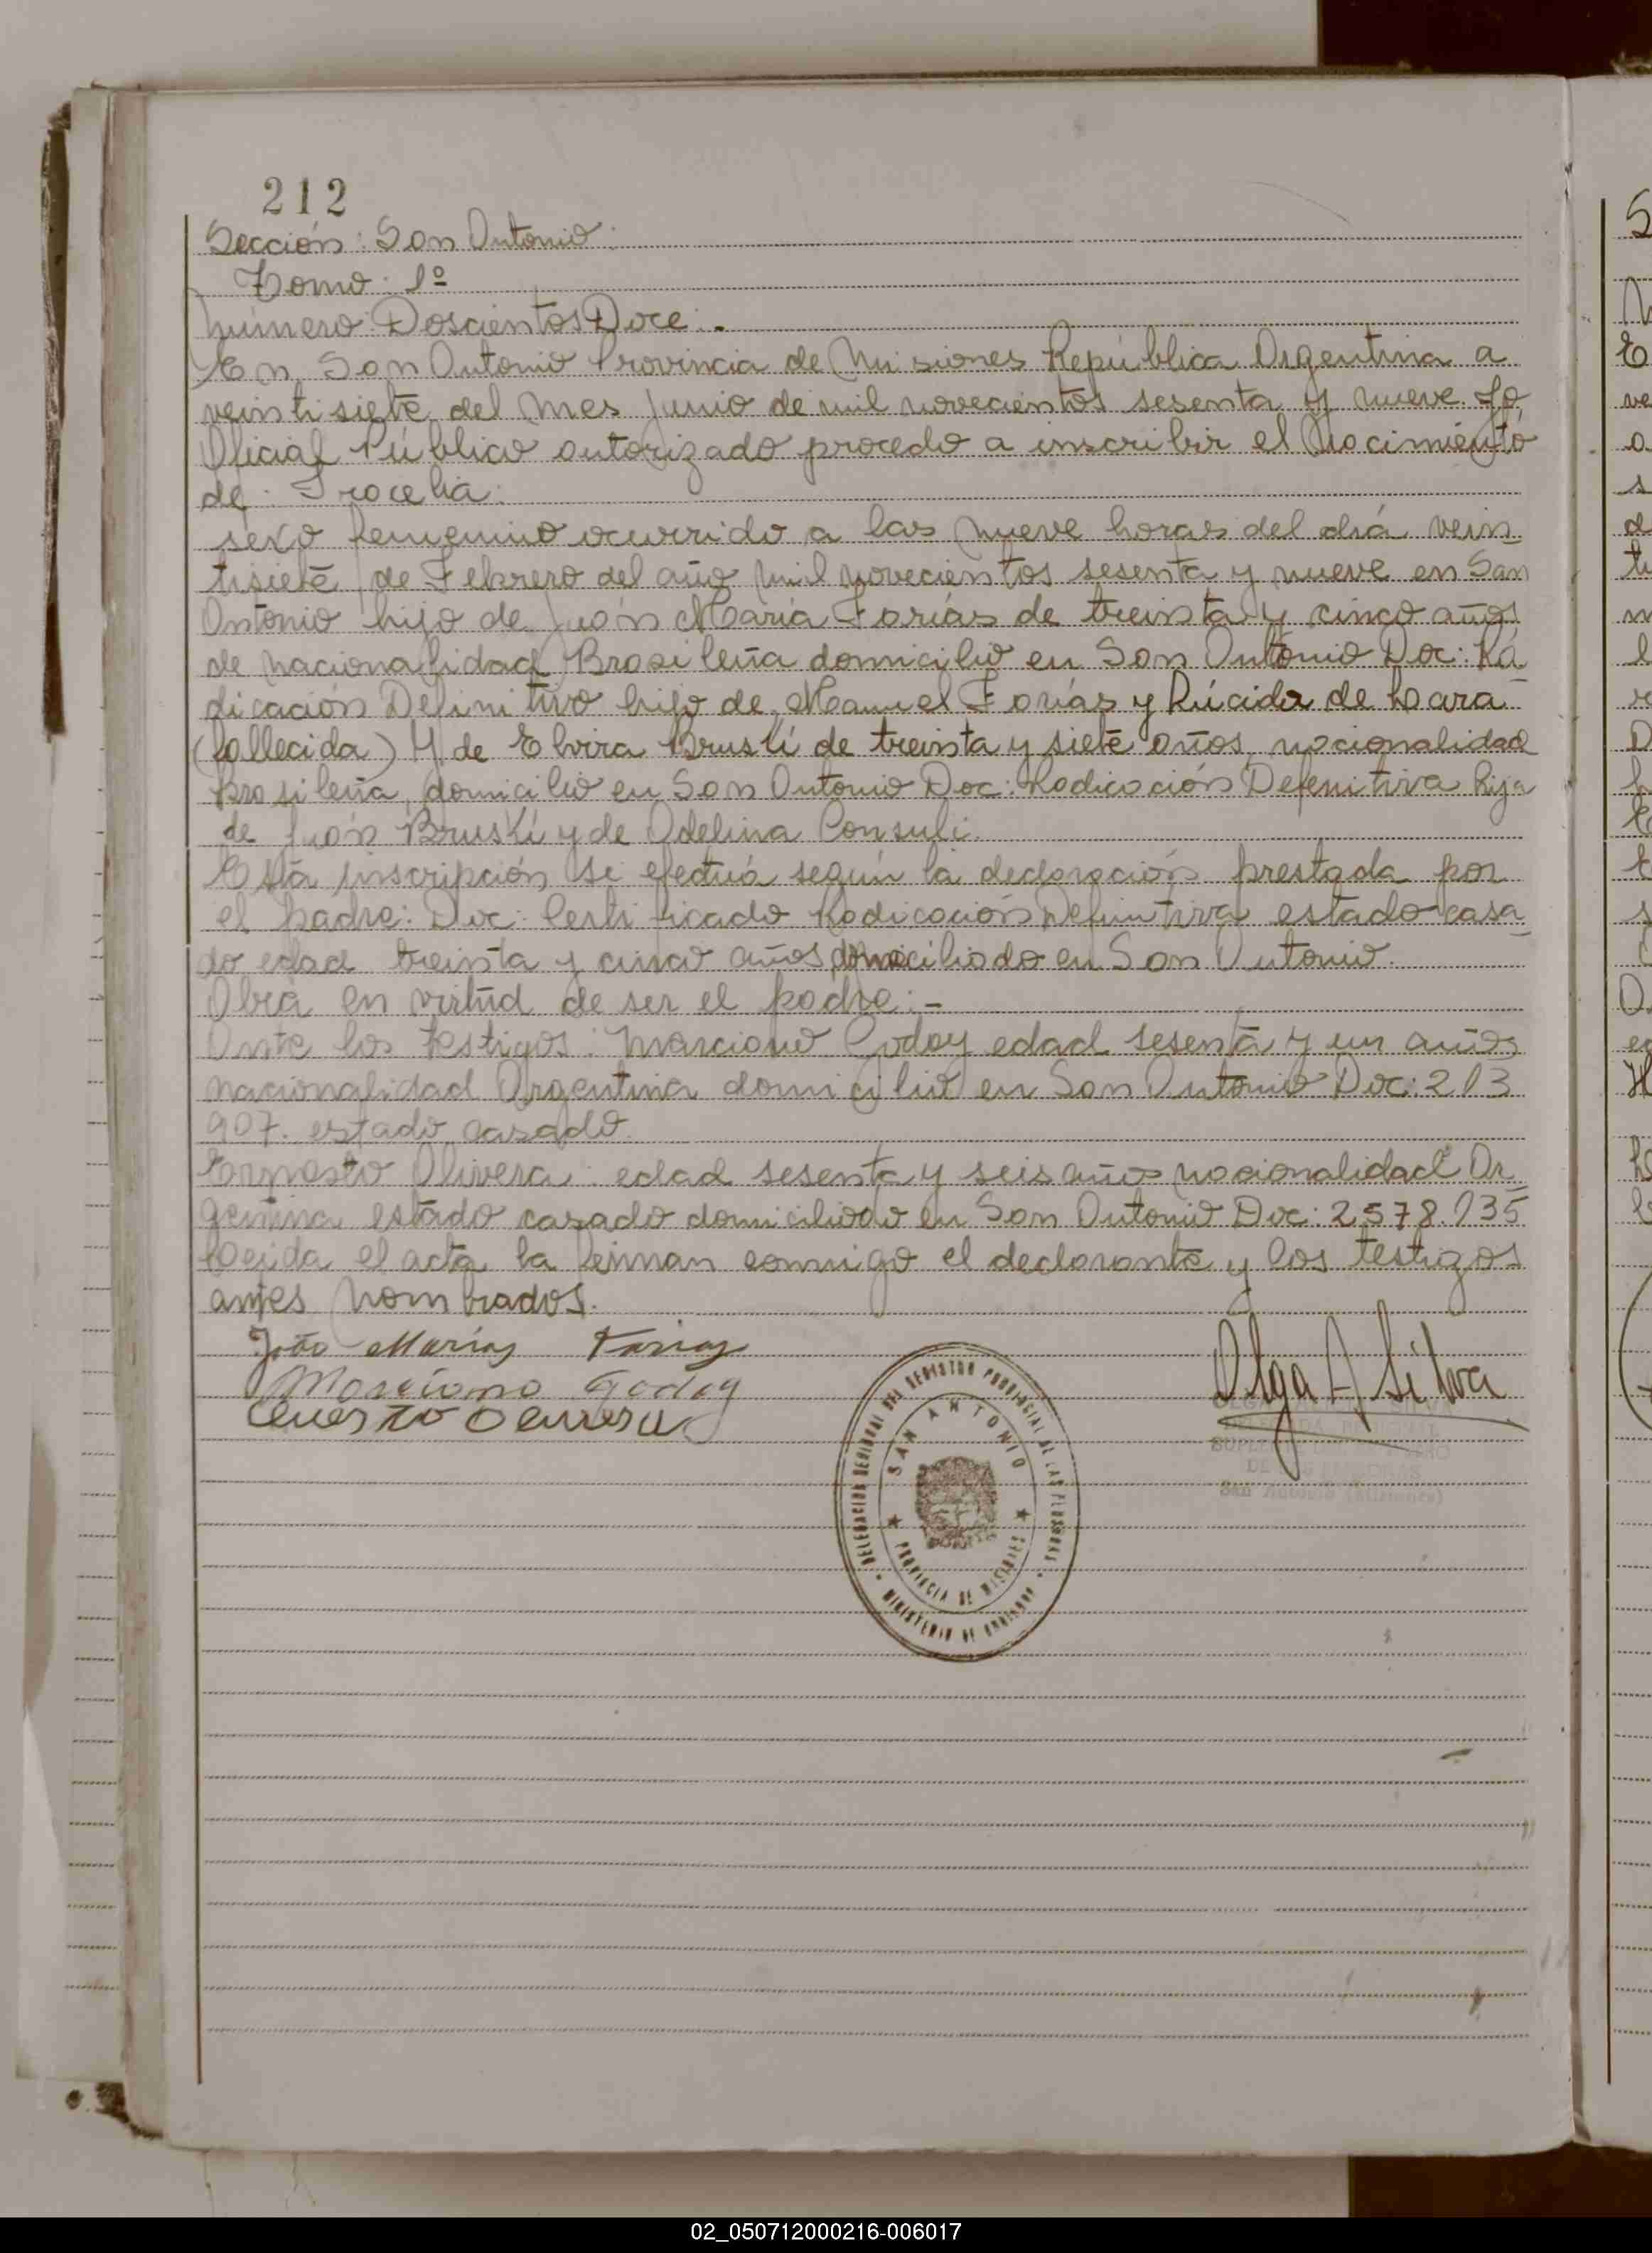 212
Sección: San Antonio.
Tomo: 1º
Número: Doscientos Doce.-
En San Antonio Provincia de Misiones República Argentina a
veintisiete del mes Junio de mil novecientos sesenta y nueve. Yo,
Oficial Público autorizado procedo a inscribir el Nacimiento
de: Irocelia.
sexo femenino ocurrido a las nueve horas del diá vein-
tisiete, de Febrero del año mil novecientos sesenta y nueve en San
Antonio hijo de Juán María Farías de treinta y cinco años
de nacionalidad Brasileña domicilio en San Antonio Doc: Ra-
dicación Definitivo hijo de Manuel Farías y Lúcida de Lara-
(fallecida) Y de Elvira Bruski de treinta y siete años, nacionalidad
brasileña, domicilio en San Antonio Doc: Radicación Definitiva hija
de Juán Bruski y de Adelina Consuli.
Esta inscripción se efectuá según la declaración prestada por
el padre: Doc: Certificado Radicación Definitiva estado casa-
do edad treinta y cinco años domiciliado en San Antonio.
Obra en virtud de ser el padre:-
Ante los testigos: Marciano Godoy edad sesenta y un años
nacionalidad Argentina domicilio en San Antonio Doc: 213
907. estado casado.
Ernesto Olivera: edad sesenta y seis años nacionalidad Ar-
gentina estado casado domiciliado en San Antonio Doc: 2578.135
Leida el acta la firman conmigo el declarante y los testigos
antes nombrados.
João Marias Farias
Marciano Godoy
Olga A Silva
DELEGACION SECCIONAL DEL REGISTRO PROVINCIAL DE LAS PERSONAS
SAN ANTONIO
PROVINCIA DE MISIONES
MINISTERIO DE GOBIERNO
San Antonio (Misiones)
02_050712000216-006017